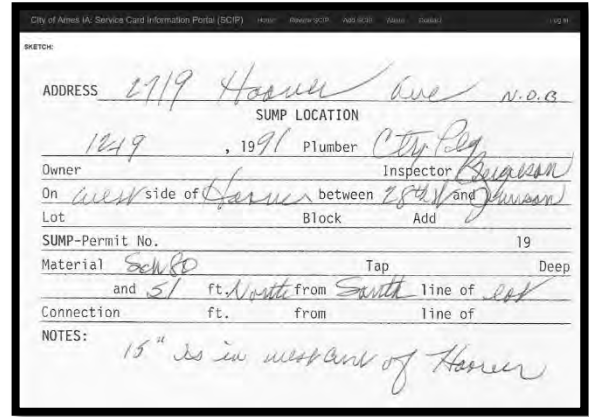 City of Ames IA: Service Card Information Portal (SCIP) Home Review SCIP Add SCIP About Contact Log in
SKETCH:
ADDRESS 2719 Hoover Ave N.O.B
SUMP LOCATION
1249 , 1991 Plumber Cty Plg
Owner Inspector
On West side of Hoover between 28th and Johnson
Lot Block Add
SUMP-Permit No. 19
Material Sch 80 Tap Deep
and 51 ft. North from South line of lot
Connection ft. from line of
NOTES:
15" is in west of Hoover